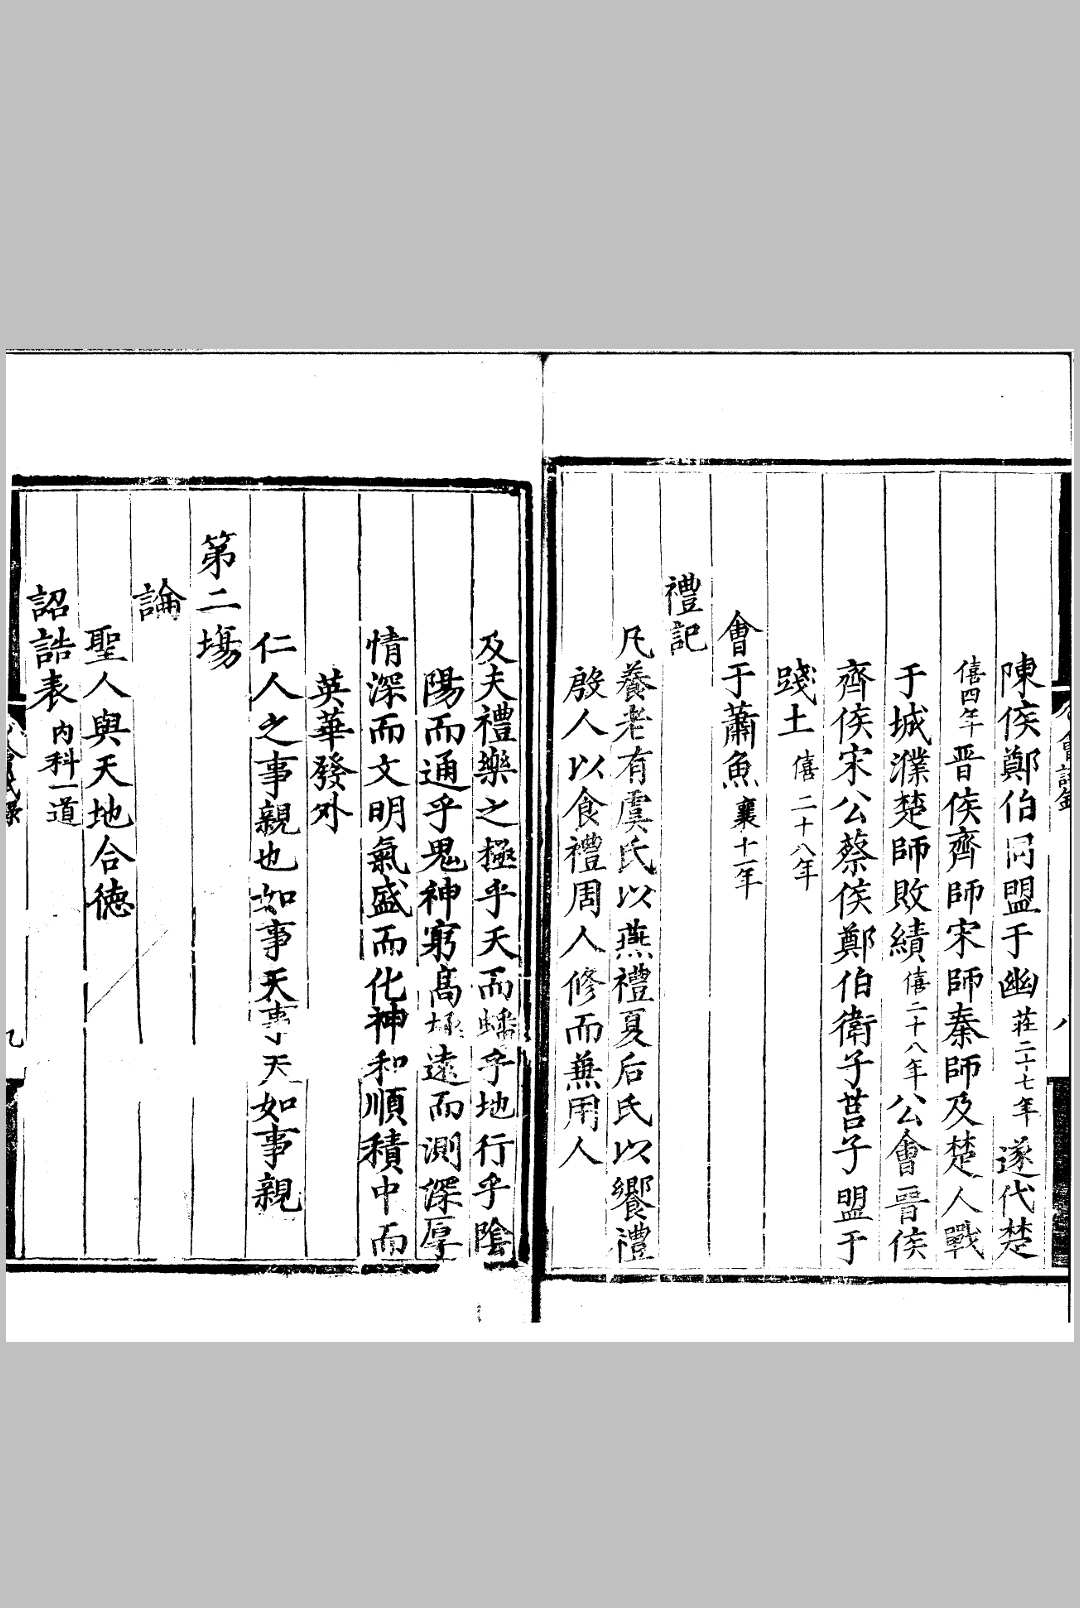 陳侯鄭伯同盟于幽莊二十七年遂伐楚
僖四年晉侯齊師宋師秦師及楚人戰
于城濮楚師敗績僖二十八年公會晉侯
齊侯宋公蔡侯鄭伯衛子莒子盟于
踐土僖二十八年
會于蕭魚襄十一年
禮記
凡養老有虞氏以燕禮夏后氏以饗禮
殷人以食禮周人修而兼用人
及夫禮樂之極乎天而蟠乎地行乎陰
陽而通乎鬼神窮高極遠而測深厚
情深而文明氣盛而化神和順積中而
英華發外
仁人之事親也如事天事天如事親
第二場
論
聖人與天地合德
詔誥表內科一道
九